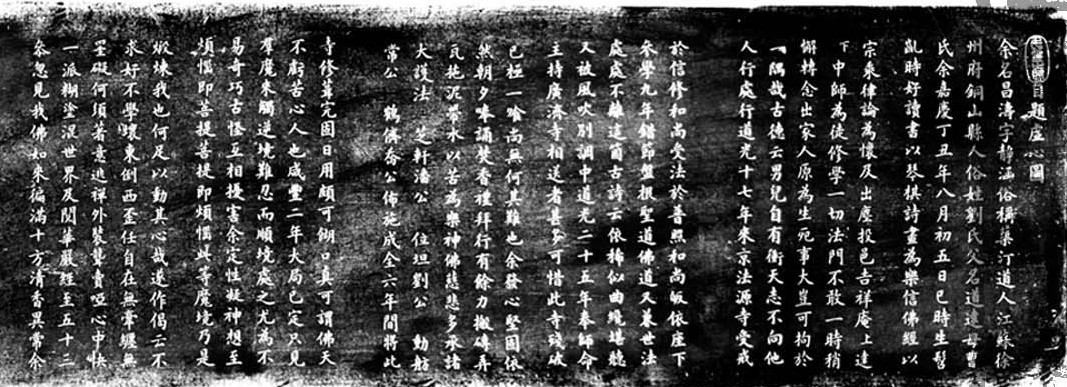 題虛心圖
余名昌濤字靜涵俗稱藥汀道人江蘇徐
州府銅山縣人俗姓劉氏父名道達母曹
氏余嘉慶丁丑年八月初五日巳時生髫
齔時好讀書以琴棋詩畫為樂信佛經以
宗乘律論為懷及出塵投邑吉祥庵上達
下中師為徒修學一切法門不敢一時稍
懈轉念出家人原為生死事大豈可拘於
一隅哉古德云男兒自有衝天志不向他
人行處行道光十七年來京法源寺受戒
於信修和尚受法於普照和尚皈依座下
參學九年錯節盤根聖道佛道又兼世法
處處不離這箇古詩云依稀似曲纔堪聽
又被風吹別調中道光二十五年奉師命
主持廣濟寺相送者甚多可惜此寺殘破
已極一喰尚無何其難也余發心堅固依
然朝夕唪誦焚香禮拜行有餘力搬磚弄
瓦拖泥帶水以苦為樂神佛慈悲多承諸
大護法 芝軒潘公 位垣劉公 勳舫
常公 鶴儕喬公佈施成全六年間將此
寺修葺完固日用頗可餬口真可謂佛天
不虧苦心人也咸豐二年大局已定只見
羣魔來觸逆境難忍而順境處之尤為不
易奇巧古怪互相擾害余定性凝神想至
煩惱即菩提菩提即煩惱此等魔境乃是
煅煉我也何足以動其心哉遂作偈云不
求好不學壞東倒西歪任自在無牽纏無
罣礙何須著意逃禪外裝聾賣啞心中快
一派糊塗混世界及閱華嚴經至五十三
參忽見我佛如來徧滿十方清香異常余